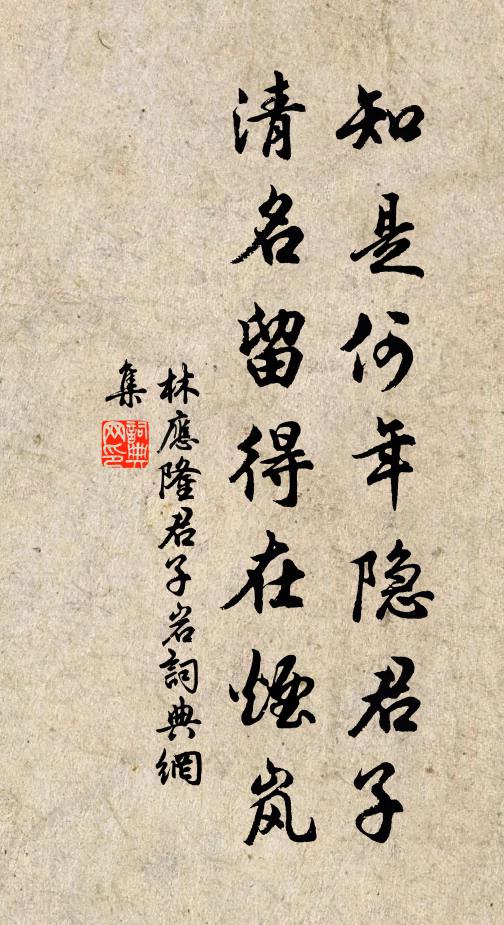 知是何年隐君子
清名留得在煙岚
林應隆君子岩詞典網
集
詞典
网印